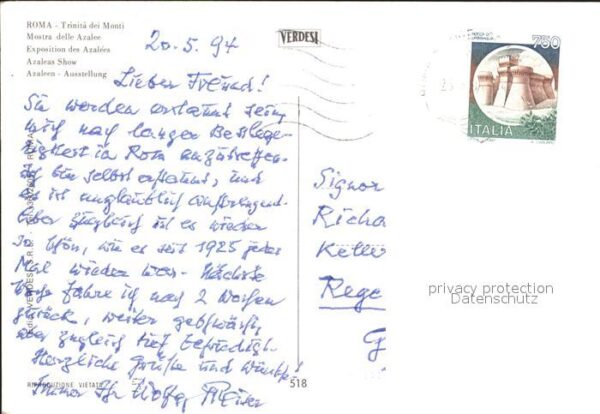 ROMA - Trinità dei Monti
Mostra delle Azalee
Exposition des Azalées
Azaleas Show
Azaleen - Ausstellung
VERDESI
20.5.94
Lieber Freund!
Sie werden erstaunt sein,
mich nach langer Bettläge-
rigkeit in Rom anzutreffen.
Ich bin selbst erstaunt, und
es ist unglaublich anstrengend.
Aber zugleich ist es wieder
so schön, wie es seit 1925 jedes
Mal wieder war. Nächste
Woche fahre ich nach 2 Wochen
zurück, weiter geschwächt,
aber zugleich tief befriedigt.
Herzliche Grüße und Wünsche!
Immer Ihr Wolfg.
RIPRODUZIONE VIETATA
518
750
ITALIA
Signor
Richa
Keller
Rege
G
privacy protection
Datenschutz